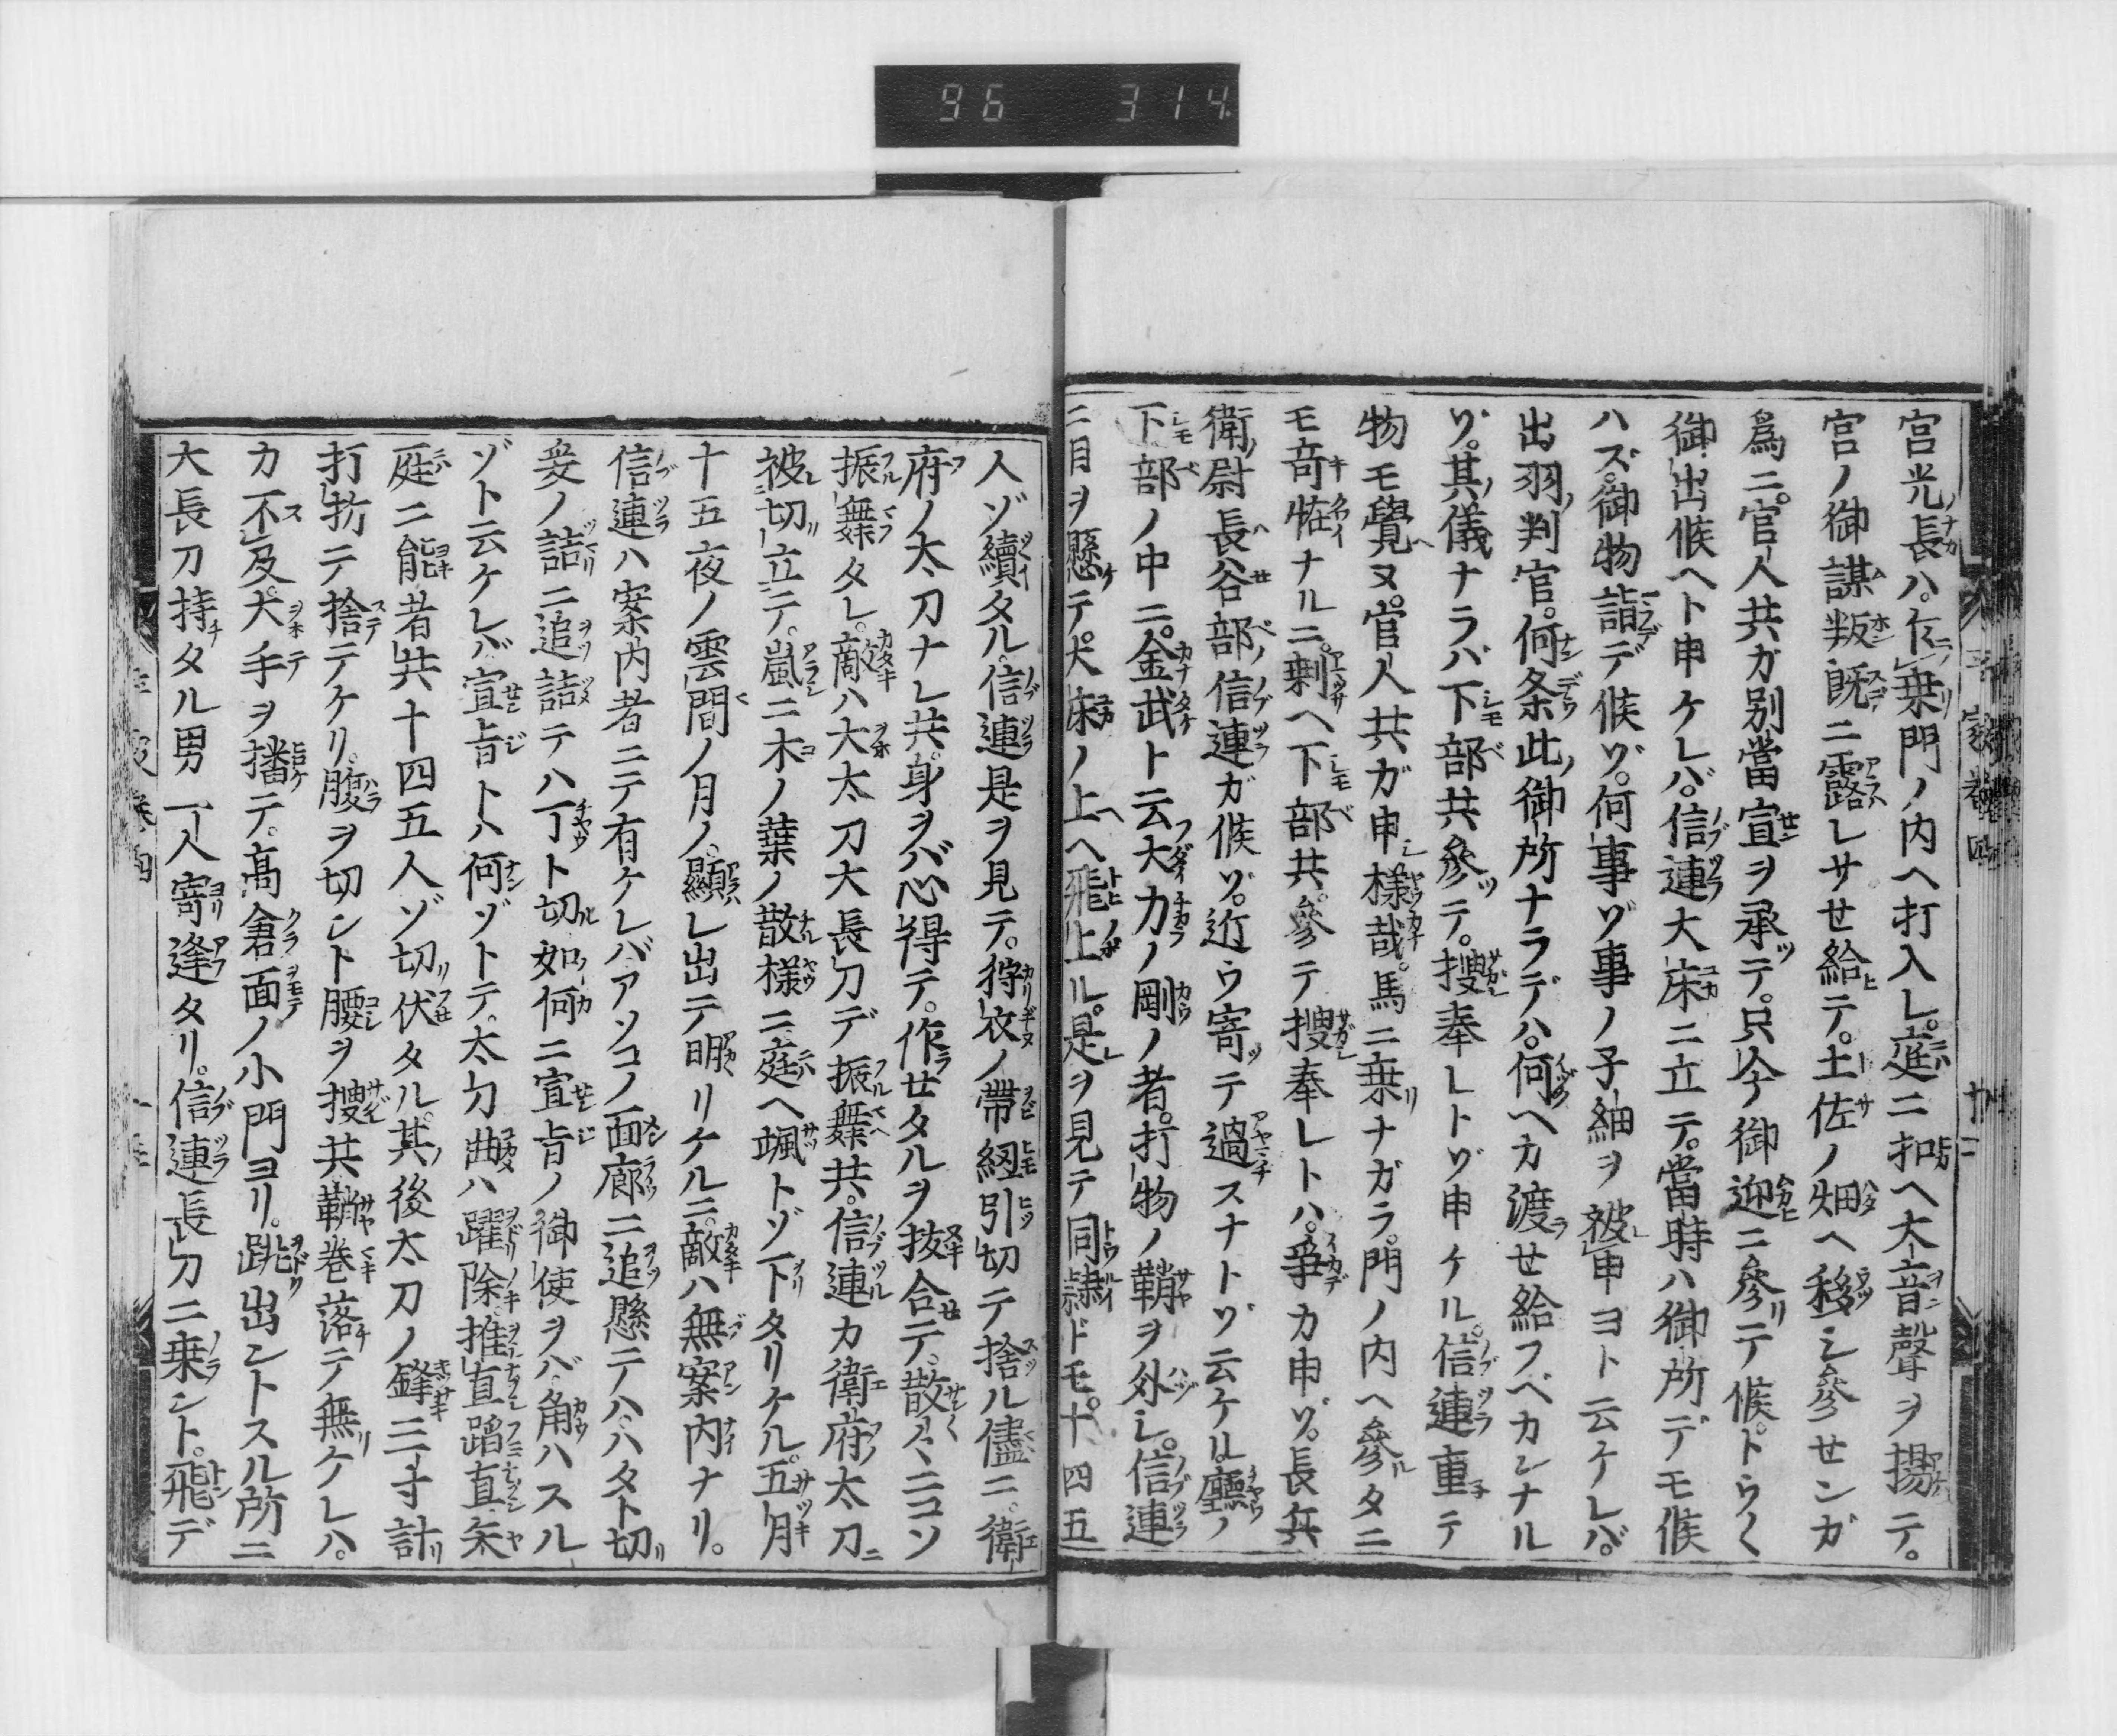 96 314
宮光長ハ。乍乗門ノ内ヘ打入レ。庭ニ扣ヘ大音聲ヲ揚テ。
宮ノ御謀叛既ニ露レサせ給テ。土佐ノ畑ヘ移シ參せンガ
爲ニ。官人共ガ別當宣ヲ承テ。只今御迎ニ參テ候。トウ〱
御出候ヘト申ケレバ。信連大床ニ立テ。當時ハ御所デモ候
ハズ。御物詣デ候ゾ。何事ゾ事ノ子細ヲ被申ヨト云ケレバ。
出羽判官。何条此御所ナラデハ。何ヘカ渡せ給フベカンナル
ゾ。其儀ナラバ下部共參テ。搜奉レトゾ申ケル。信連重テ
物モ覺ヌ。官人共ガ申樣哉。馬ニ乗ナガラ。門ノ内ヘ參タニ
モ奇恠ナルニ。剰ヘ下部共。參テ搜奉レトハ。爭カ申ゾ。長兵
衛尉長谷部信連ガ候ゾ。近ウ寄テ過スナトゾ云ケル廳ノ
下部ノ中ニ。金武ト云大力ノ剛ノ者。打物ノ鞘ヲ外シ。信連
ニ目ヲ懸テ。大床ノ上ヘ飛上ル。是ヲ見テ同隷ドモ。十四五
人ゾ續タル。信連是ヲ見テ。狩衣ノ帶紐引切テ捨ル儘ニ。衛
府ノ太刀ナレ共。身ヲバ心得テ。作せタルヲ抜合テ。散〻ニコソ
振舞タレ。敵ハ大太刀大長刀デ振舞共。信連カ衛府太刀ニ
被切立テ。嵐ニ木ノ葉ノ散様ニ庭ヘ颯トゾ下タリケル。五月
十五夜ノ雲間ノ月ノ。顯レ出テ明リケルニ。敵ハ無案内ナリ。
信連ハ案内者ニテ有ケレバ。アソコノ面廊ニ追懸テハ。ハタト切
爰ノ詰ニ追詰テハ丁ト切如何ニ宣旨ノ御使ヲバ角ハスル
ゾト云ケレバ宣旨トハ何ゾトテ。太刀曲ハ躍除。推直蹈直矢
庭ニ能者共十四五人ゾ切伏タル。其後太刀ノ鋒三寸計
打折テ捨テケリ。腹ヲ切ント腰ヲ搜共鞘巻落テ無ケレハ。
カ不及。大手ヲ播テ。髙倉面ノ小門ヨリ。跳出ントスル所ニ
大長刀持タル男一人寄逢タリ。信連長刀ニ乗ント。飛デ